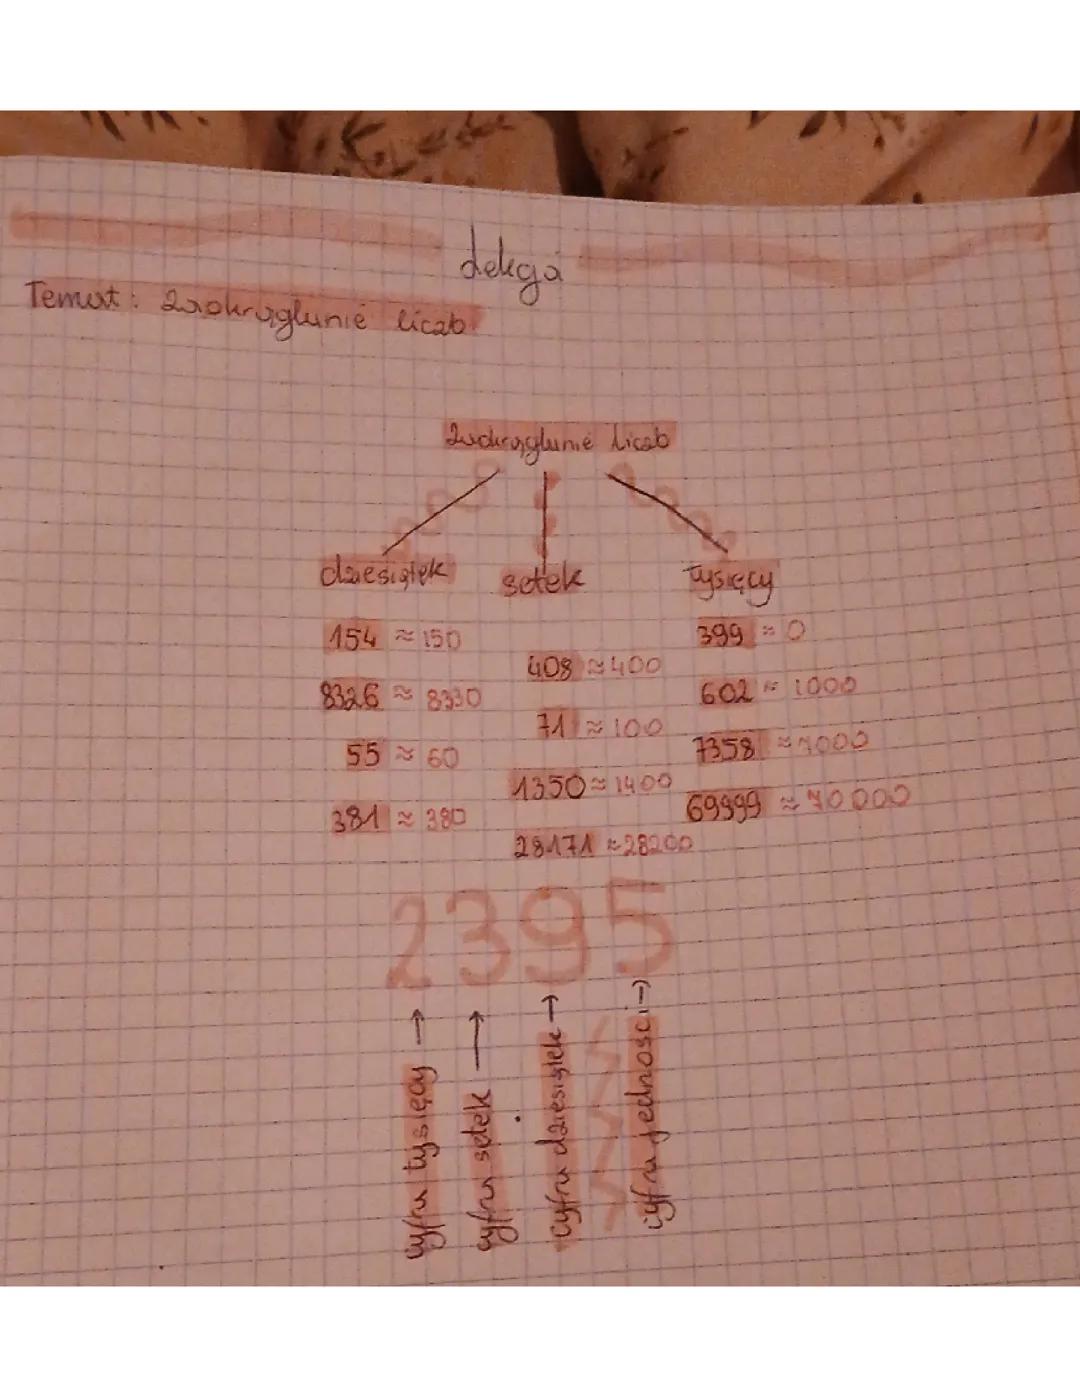 Lekcja
Temat: Zaokrąglanie liczb
Zaokrąglanie liczb
dziesiątek setek tysięcy
154 ≈ 150
399 ≈ 0
408 ≈ 400
8326 ≈ 8330
602 ≈ 1000
71 ≈ 100
55 ≈ 60
7358 ≈ 7000
1350 ≈ 1400
381 ≈ 380
69999 ≈ 70 000
28171 ≈ 28200
2395
cyfra tysięcy →
cyfra setek →
cyfra dziesiątek →
cyfra jedności →